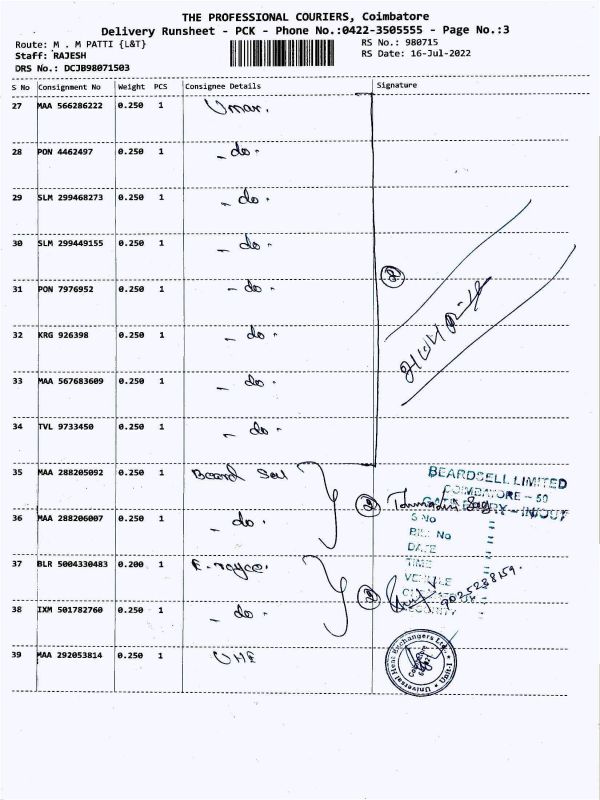 THE PROFESSIONAL COURIERS, Coimbatore
Delivery Runsheet - PCK - Phone No.:0422-3505555 - Page No.:3
Route: M . M PATTI {L&T}
RS No.: 980715
Staff: RAJESH
RS Date: 16-Jul-2022
DRS No.: DCJB98071503
S No Consignment No Weight PCS Consignee Details Signature
27 MAA 566286222 0.250 1 Umar.
28 PON 4462497 0.250 1 - do -
29 SLM 299468273 0.250 1 - do -
30 SLM 299449155 0.250 1 - do -
31 PON 7976952 0.250 1 - do -
32 KRG 926398 0.250 1 - do -
33 MAA 567683609 0.250 1 - do -
34 TVL 9733450 0.250 1 - do -
35 MAA 288205092 0.250 1 Beard Sell
36 MAA 288206007 0.250 1 - do -
37 BLR 5004330483 0.200 1
38 IXM 501782760 0.250 1 - do -
39 MAA 292053814 0.250 1 UHE
2
2
2
BEARDSELL LIMITED
COIMBATORE - 50
GATE ENTRY - IN/OUT
S No
Bill No
DATE
TIME
VEHICLE
SECURITY
9025238159.
Universal Heat Exchangers Ltd., Unit-I
Coimbatore